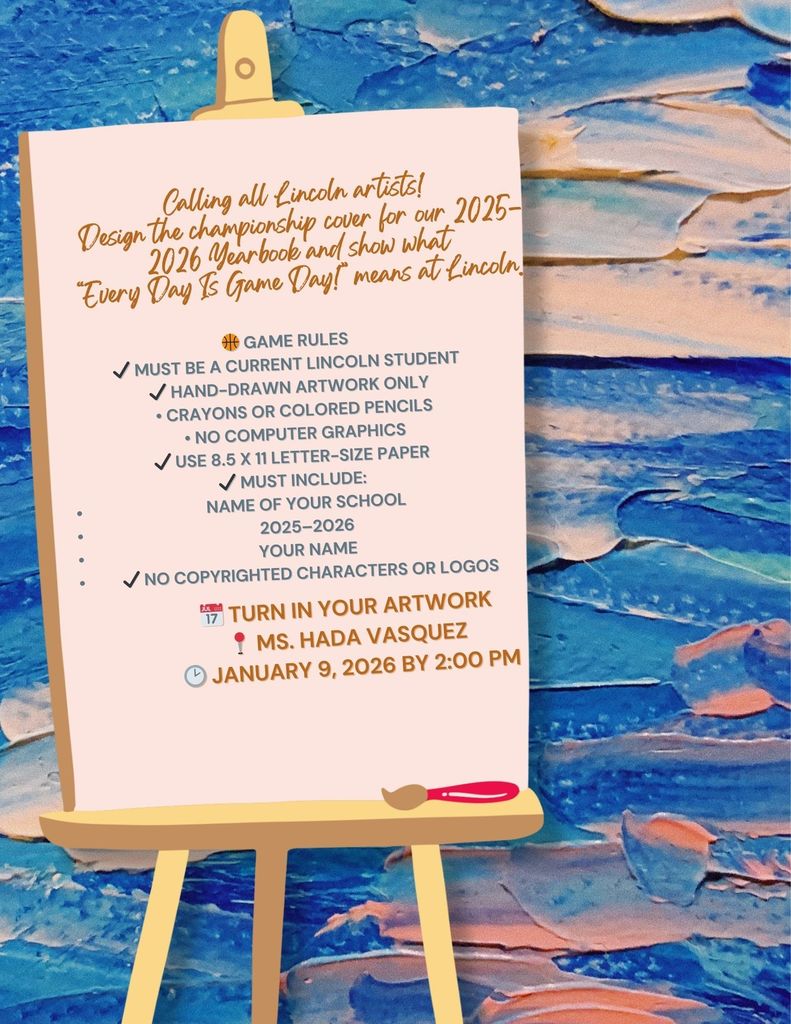 Calling all Lincoln artists!
Design the championship cover for our 2025–
2026 Yearbook and show what
"Every Day Is Game Day!" means at Lincoln.
🏀 GAME RULES
✔ MUST BE A CURRENT LINCOLN STUDENT
✔ HAND-DRAWN ARTWORK ONLY
• CRAYONS OR COLORED PENCILS
• NO COMPUTER GRAPHICS
✔ USE 8.5 X 11 LETTER-SIZE PAPER
✔ MUST INCLUDE:
• NAME OF YOUR SCHOOL
• 2025–2026
• YOUR NAME
• ✔ NO COPYRIGHTED CHARACTERS OR LOGOS
📅 TURN IN YOUR ARTWORK
📍 MS. HADA VASQUEZ
🕒 JANUARY 9, 2026 BY 2:00 PM